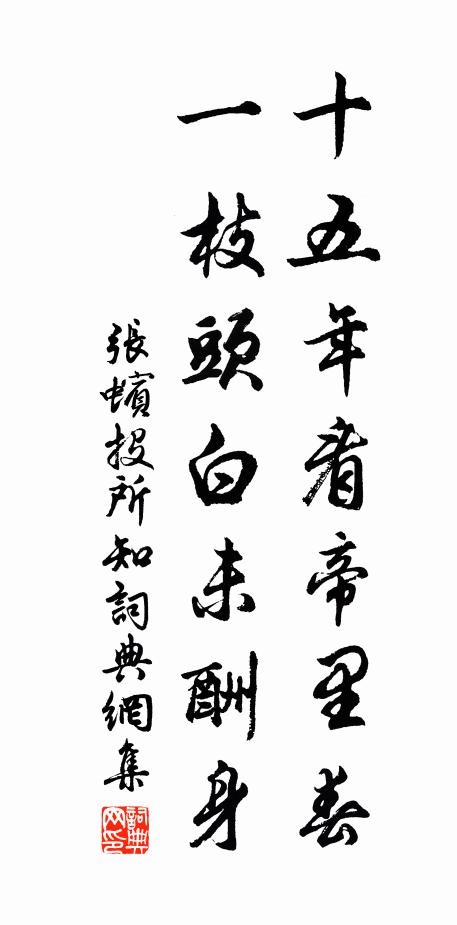 十五年看帝里春
一枝頭白未酬身
張蠙投所知詞典網集
詞典網印